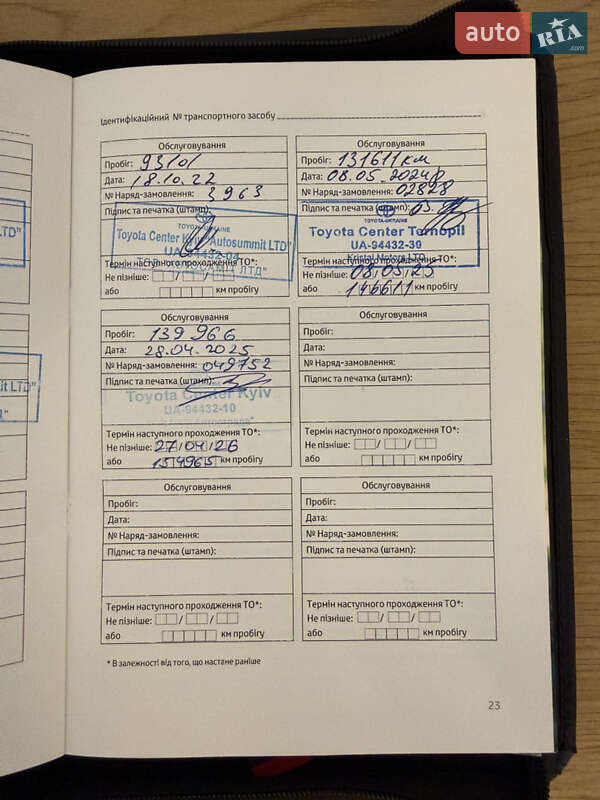 auto RIA .com
Ідентифікаційний № транспортного засобу
Обслуговування
Пробіг: 93101
Дата: 18.10.22
№ Наряд-замовлення: 3963
Підпис та печатка (штамп):
TOYOTA-UKRAINE
Toyota Center Kyiv "Autosummit LTD"
UA-94432-04
Термін наступного проходження ТО*:
Не пізніше: / /
або км пробігу
Обслуговування
Пробіг: 131611 км
Дата: 08.05.2024р
№ Наряд-замовлення: 02828
Підпис та печатка (штамп):
TOYOTA-UKRAINE
Toyota Center Ternopil
UA-94432-39
Kristal Motors LTD
Термін наступного проходження ТО*:
Не пізніше: 08/05/25
або 146611 км пробігу
Обслуговування
Пробіг: 139 966
Дата: 28.04.2025
№ Наряд-замовлення: 049752
Підпис та печатка (штамп):
Toyota Center Kyiv
UA-94432-10
Термін наступного проходження ТО*:
Не пізніше: 27/04/26
або 154965 км пробігу
Обслуговування
Пробіг:
Дата:
№ Наряд-замовлення:
Підпис та печатка (штамп):
Термін наступного проходження ТО*:
Не пізніше: / /
або км пробігу
Обслуговування
Пробіг:
Дата:
№ Наряд-замовлення:
Підпис та печатка (штамп):
Термін наступного проходження ТО*:
Не пізніше: / /
або км пробігу
Обслуговування
Пробіг:
Дата:
№ Наряд-замовлення:
Підпис та печатка (штамп):
Термін наступного проходження ТО*:
Не пізніше: / /
або км пробігу
* В залежності від того, що настане раніше
23